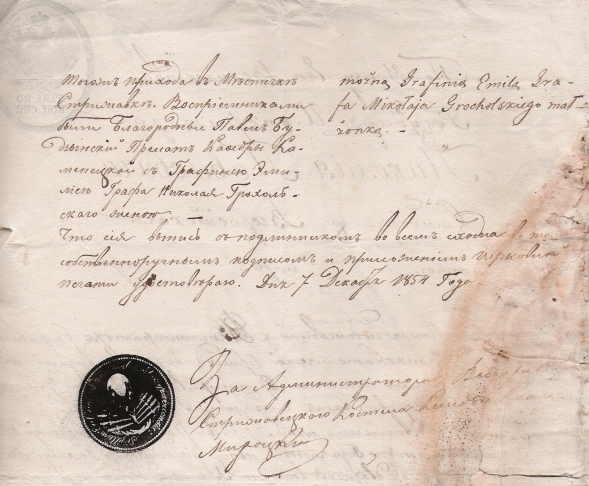 тогожъ прихода въ Мѣстечкѣ
Стрижавкѣ. Воспріемниками
были Благородные Павелъ Бу-
дзынскій Прелатъ Каѳедры Ка-
менецкой съ Графинею Эми-
лiею Графа Николая Грохоль-
скаго женою. —
możną Grafinią Emilą Gra-
fa Mikołaja Grocholskiego mał-
żonką. -
Что сія выпись съ подлинникомъ во всемъ сходна въ томъ
собственноручнымъ подписомъ и приложеніемъ церковной
печати удостовѣряю. Дня 7 Декабря 1854 Года
За Администратора
Стрижавецкаго Костела Ксендзъ
Мироцкій